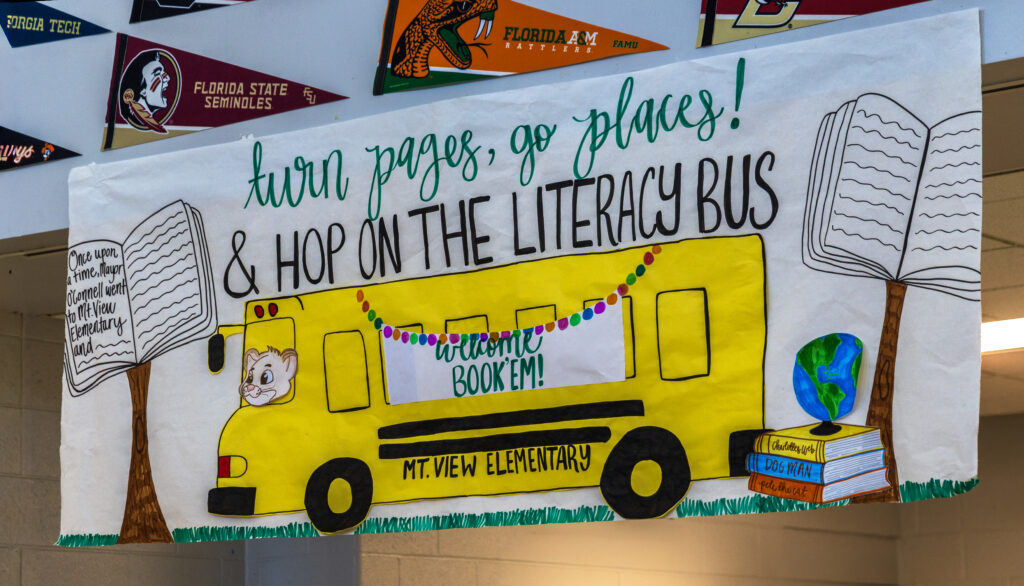 GEORGIA TECH
FLORIDA STATE
SEMINOLES
FSU
FLORIDA A&M
RATTLERS
FAMU
turn pages, go places!
& HOP ON THE LITERACY BUS
Once upon
a time, Mayor
O'Connell went
to Mt. View
Elementary
and
welcome
BOOK'EM!
MT. VIEW ELEMENTARY
Charlotte's Web
DOG MAN
pete the cat